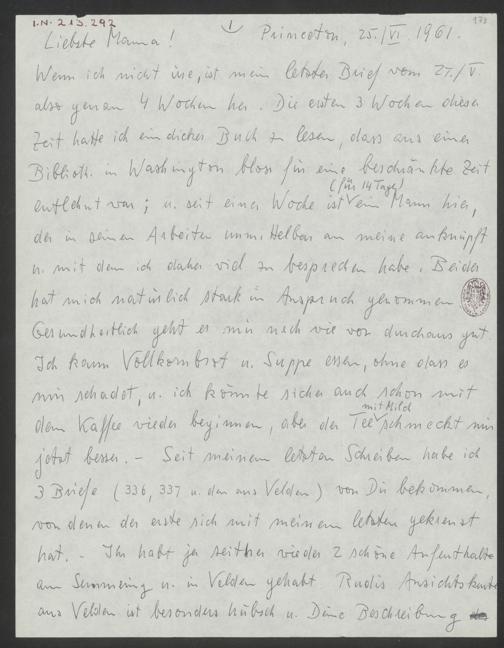 I.N. 213.292
1 173
Liebste Mama! Princeton, 25./VI. 1961.
Wenn ich nicht irre, ist mein letzter Brief vom 27./V.
also genau 4 Wochen her. Die ersten 3 Wochen dieser
Zeit hatte ich ein dickes Buch zu lesen, dass aus einer
Biblioth. in Washington bloss für eine beschränkte Zeit
(für 14 Tage)
entlehnt war; u. seit einer Woche ist ein Mann hier,
der in seinen Arbeiten unmittelbar an meine anknüpft
u. mit dem ich daher viel zu besprechen habe. Beides
hat mich natürlich stark in Anspruch genommen
Gesundheitlich geht es mir nach wie vor durchaus gut.
Ich kann Vollkornbrot u. Suppe essen, ohne dass es
mir schadet, u. ich könnte sicher auch schon mit
mit Milch
dem Kaffee wieder beginnen, aber der Tee schmeckt mir
jetzt besser. – Seit meinem letzten Schreiben habe ich
3 Briefe (336, 337 u. den aus Velden) von Dir bekommen,
von denen der erste sich mit meinem letzten gekreuzt
hat. – Ihr habt ja seither wieder 2 schöne Aufenthalte
am Semmering u. in Velden gehabt. Rudis Ansichtskarte
aus Velden ist besonders hübsch u. Deine Beschreibung